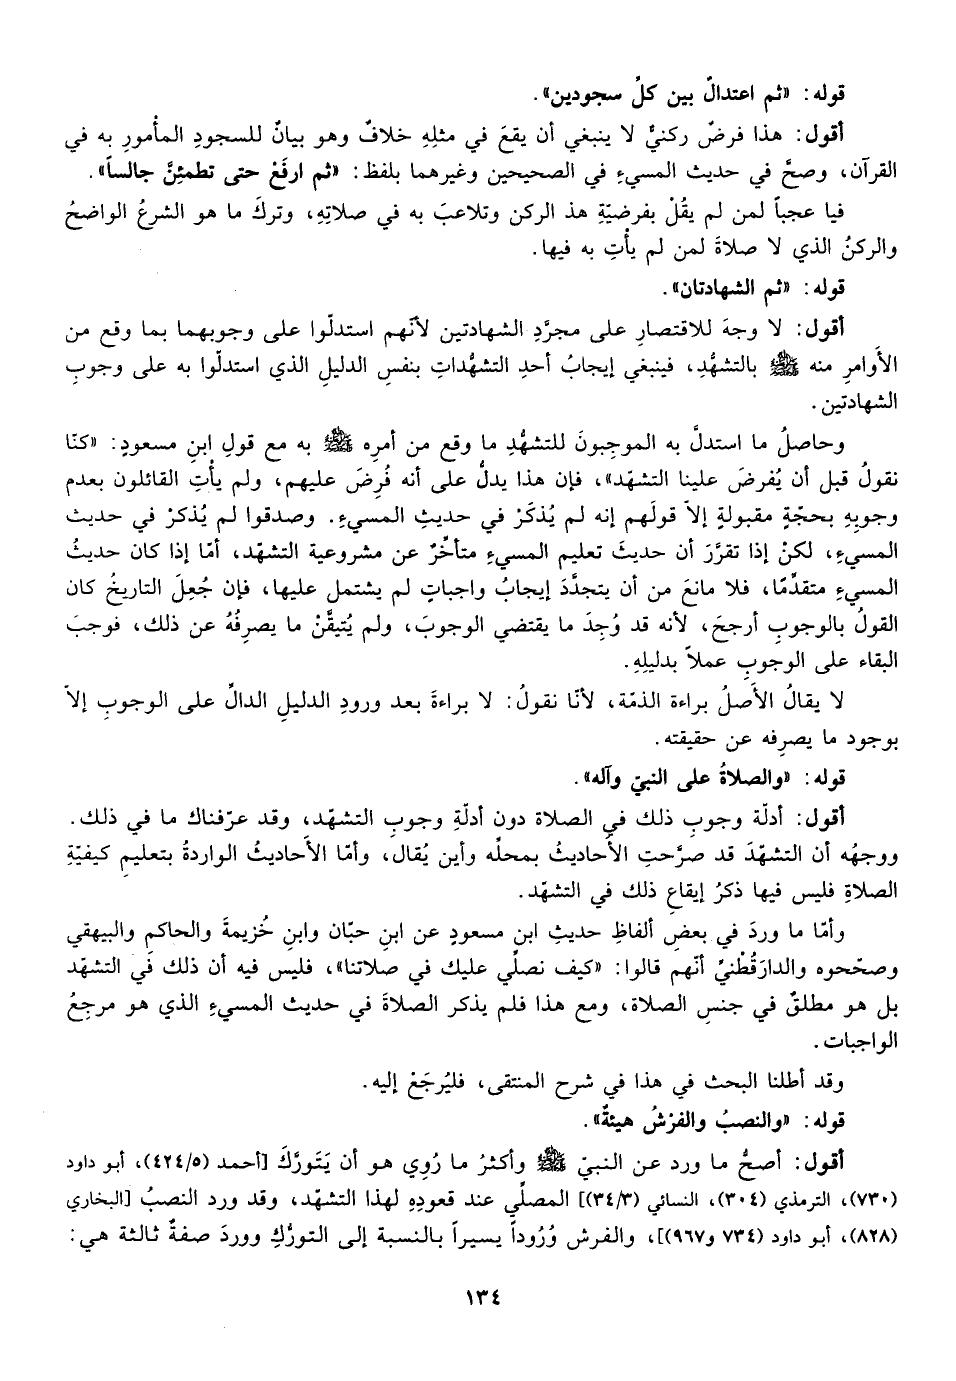 قوله: «ثم اعتدالٌ بين كلِّ سجودين».
أقول: هذا فرضٌ ركنيٌّ لا ينبغي أن يقعَ في مثلِهِ خلافٌ وهو بيانٌ للسجودِ المأمورِ به في
القرآن، وصحَّ في حديث المسيءِ في الصحيحين وغيرهما بلفظ: «ثم ارفَعْ حتى تطمئِنَّ جالساً».
فيا عجباً لمن لم يقُلْ بفرضيّةِ هذ الركن وتلاعبَ به في صلاتِهِ، وتركَ ما هو الشرعُ الواضحُ
والركنُ الذي لا صلاةَ لمن لم يأْتِ به فيها.
قوله: «ثم الشهادتان».
أقول: لا وجهَ للاقتصارِ على مجرَّدِ الشهادتين لأنّهم استدلّوا على وجوبهما بما وقع من
الأَوامرِ منه ﷺ بالتشهُّدِ، فينبغي إيجابُ أحدِ التشهُّداتِ بنفسِ الدليلِ الذي استدلّوا به على وجوبِ
الشهادتين.
وحاصلُ ما استدلَّ به الموجِبونَ للتشهُّدِ ما وقع من أمرِه ﷺ به مع قولِ ابنِ مسعودٍ: «كنّا
نقولُ قبل أن يُفرضَ علينا التشهّد»، فإن هذا يدلُّ على أنه فُرِضَ عليهم، ولم يأْتِ القائلون بعدم
وجوبِهِ بحجّةٍ مقبولةٍ إلاّ قولَهم إنه لم يُذكَرْ في حديثِ المسيءِ. وصدقوا لم يُذكرْ في حديث
المسيءِ، لكنْ إذا تقرَّرَ أن حديثَ تعليم المسيءِ متأخِّرٌ عن مشروعية التشهّد، أمّا إذا كان حديثُ
المسيءِ متقدِّمًا، فلا مانعَ من أن يتجدَّدَ إيجابُ واجباتٍ لم يشتمل عليها، فإن جُعِلَ التاريخُ كان
القولُ بالوجوبِ أرجحَ، لأنه قد وُجِدَ ما يقتضي الوجوبَ، ولم يُتيقَّنْ ما يصرِفُهُ عن ذلك، فوجبَ
البقاء على الوجوبِ عملاً بدليلِهِ.
لا يقالُ الأَصلُ براءة الذمّة، لأنّا نقولُ: لا براءةَ بعد ورودِ الدليلِ الدالِّ على الوجوبِ إلاّ
بوجود ما يصرِفه عن حقيقته.
قوله: «والصلاةُ على النبيّ وآله».
أقول: أدلّة وجوبِ ذلك في الصلاة دون أدلّةِ وجوبِ التشهّد، وقد عرّفناك ما في ذلك.
ووجهُه أن التشهّدَ قد صرَّحتِ الأحاديثُ بمحلِّه وأين يُقال، وأمّا الأحاديثُ الواردةُ بتعليمِ كيفيّةِ
الصلاةِ فليس فيها ذكرُ إيقاعِ ذلك في التشهّد.
وأمّا ما وردَ في بعضِ ألفاظِ حديثِ ابنِ مسعودٍ عن ابنِ حبّان وابنِ خُزيمةَ والحاكمِ والبيهقي
وصحّحوه والدارَقُطْنيِّ أنّهم قالوا: «كيف نصلّي عليك في صلاتنا»، فليس فيه أن ذلك في التشهّد
بل هو مطلقٌ في جنسِ الصلاة، ومع هذا فلم يذكر الصلاةَ في حديث المسيءِ الذي هو مرجِعُ
الواجبات.
وقد أطلنا البحث في هذا في شرح المنتقى، فليُرجَعْ إليه.
قوله: «والنصبُ والفرْشُ هيئةٌ».
أقول: أصحُّ ما ورد عن النبيّ ﷺ وأكثرُ ما رُوِي هو أن يَتَورَّكَ [أحمد (٤٢٤/٥)، أبو داود
(٧٣٠)، الترمذي (٣٠٤)، النسائي (٣٤/٣)] المصلّي عند قعودِهِ لهذا التشهّد، وقد ورد النصبُ [البخاري
(٨٢٨)، أبو داود (٧٣٤ و٩٦٧)]، والفرش وُرُوداً يسيراً بالنسبة إلى التورُّكِ ووردَ صفةٌ ثالثة هي:
١٣٤